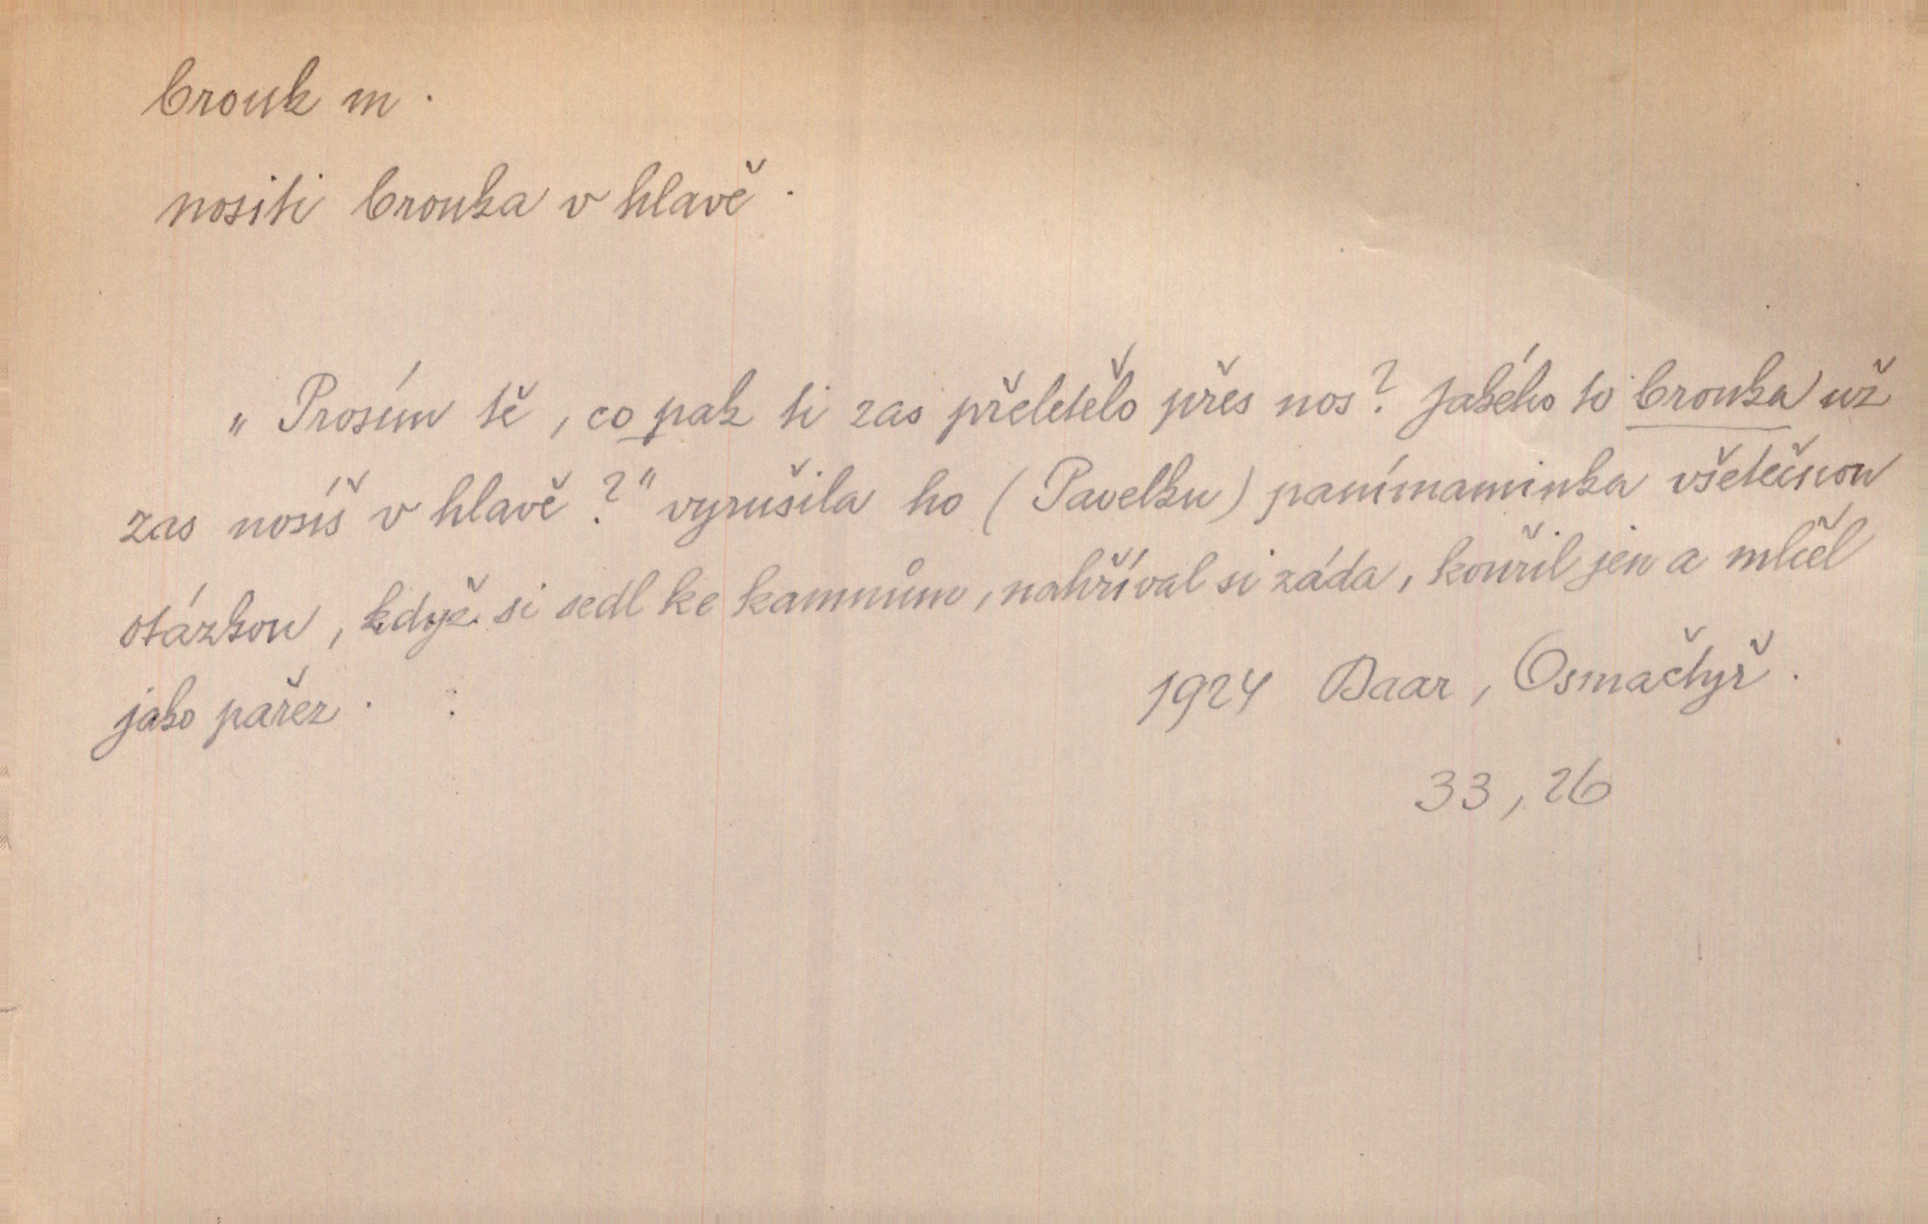 brouk m.
nositi brouka v hlavě.
„Prosím tě, co pak ti zas přeletělo přes nos? Jakého to brouka už
zas nosíš v hlavě?" vyrušila ho (Pavelku) panímaminka všetečnou
otázkou, když si sedl ke kamnům, nahříval si záda, kouřil jen a mlčel
jako pařez.
1924 Baar, Osmačtyř.
33, 26